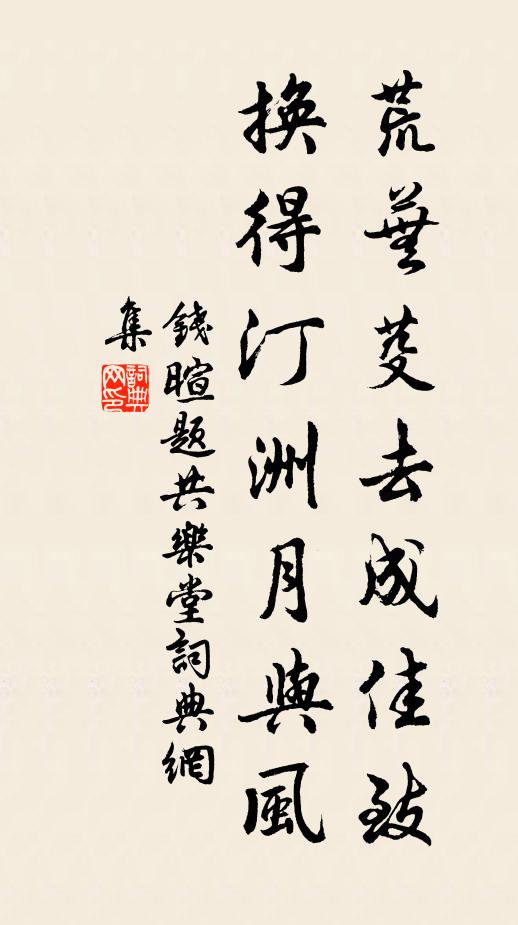 荒蕪芟去成佳致
換得汀洲月與風
錢暄題共樂堂詞典網
集
詞典
网印